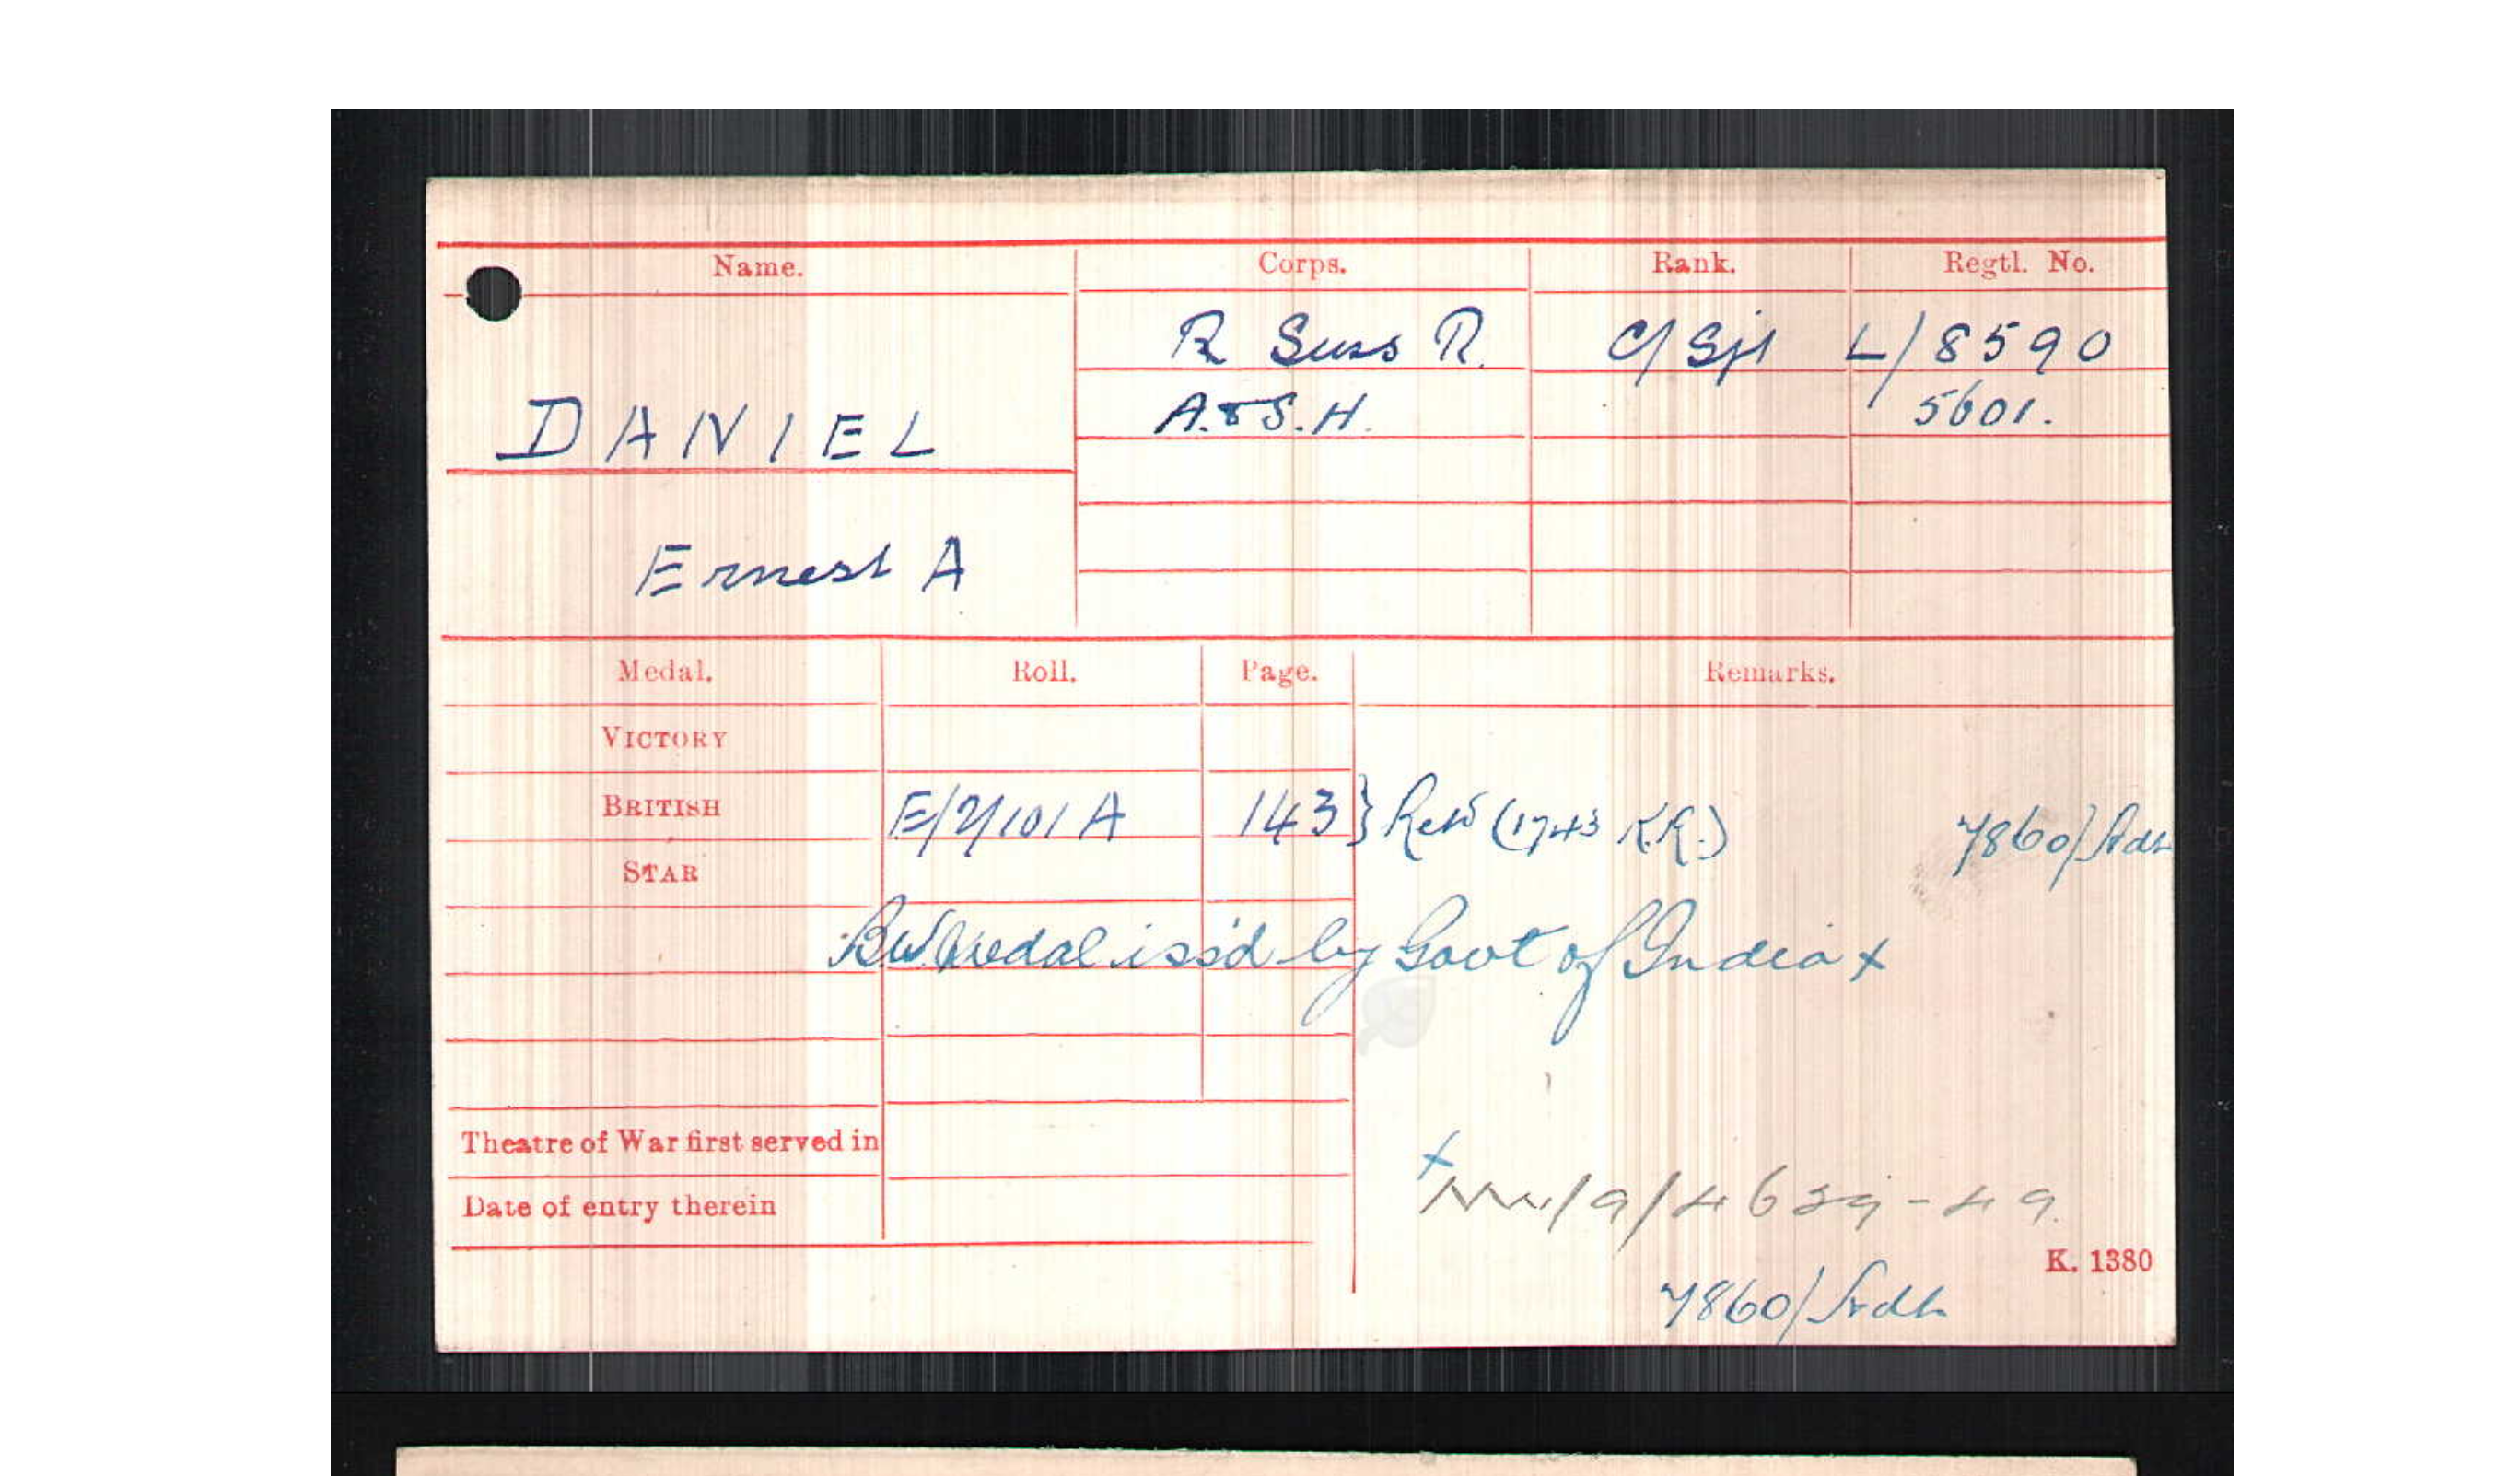 Name. Corps. Rank. Regtl. No.
R Suss R. C/Sjt L/8590
DANIEL A.&S.H. 5601.
Ernest A
Medal. Roll. Page. Remarks.
VICTORY
BRITISH E/2/101 A 143 } Retd (1743 K.R.) 7860/Adt
STAR
B.W. Medal iss'd by Govt of India x
Theatre of War first served in
x
Date of entry therein /9/4639-49.
K. 1380
7860/